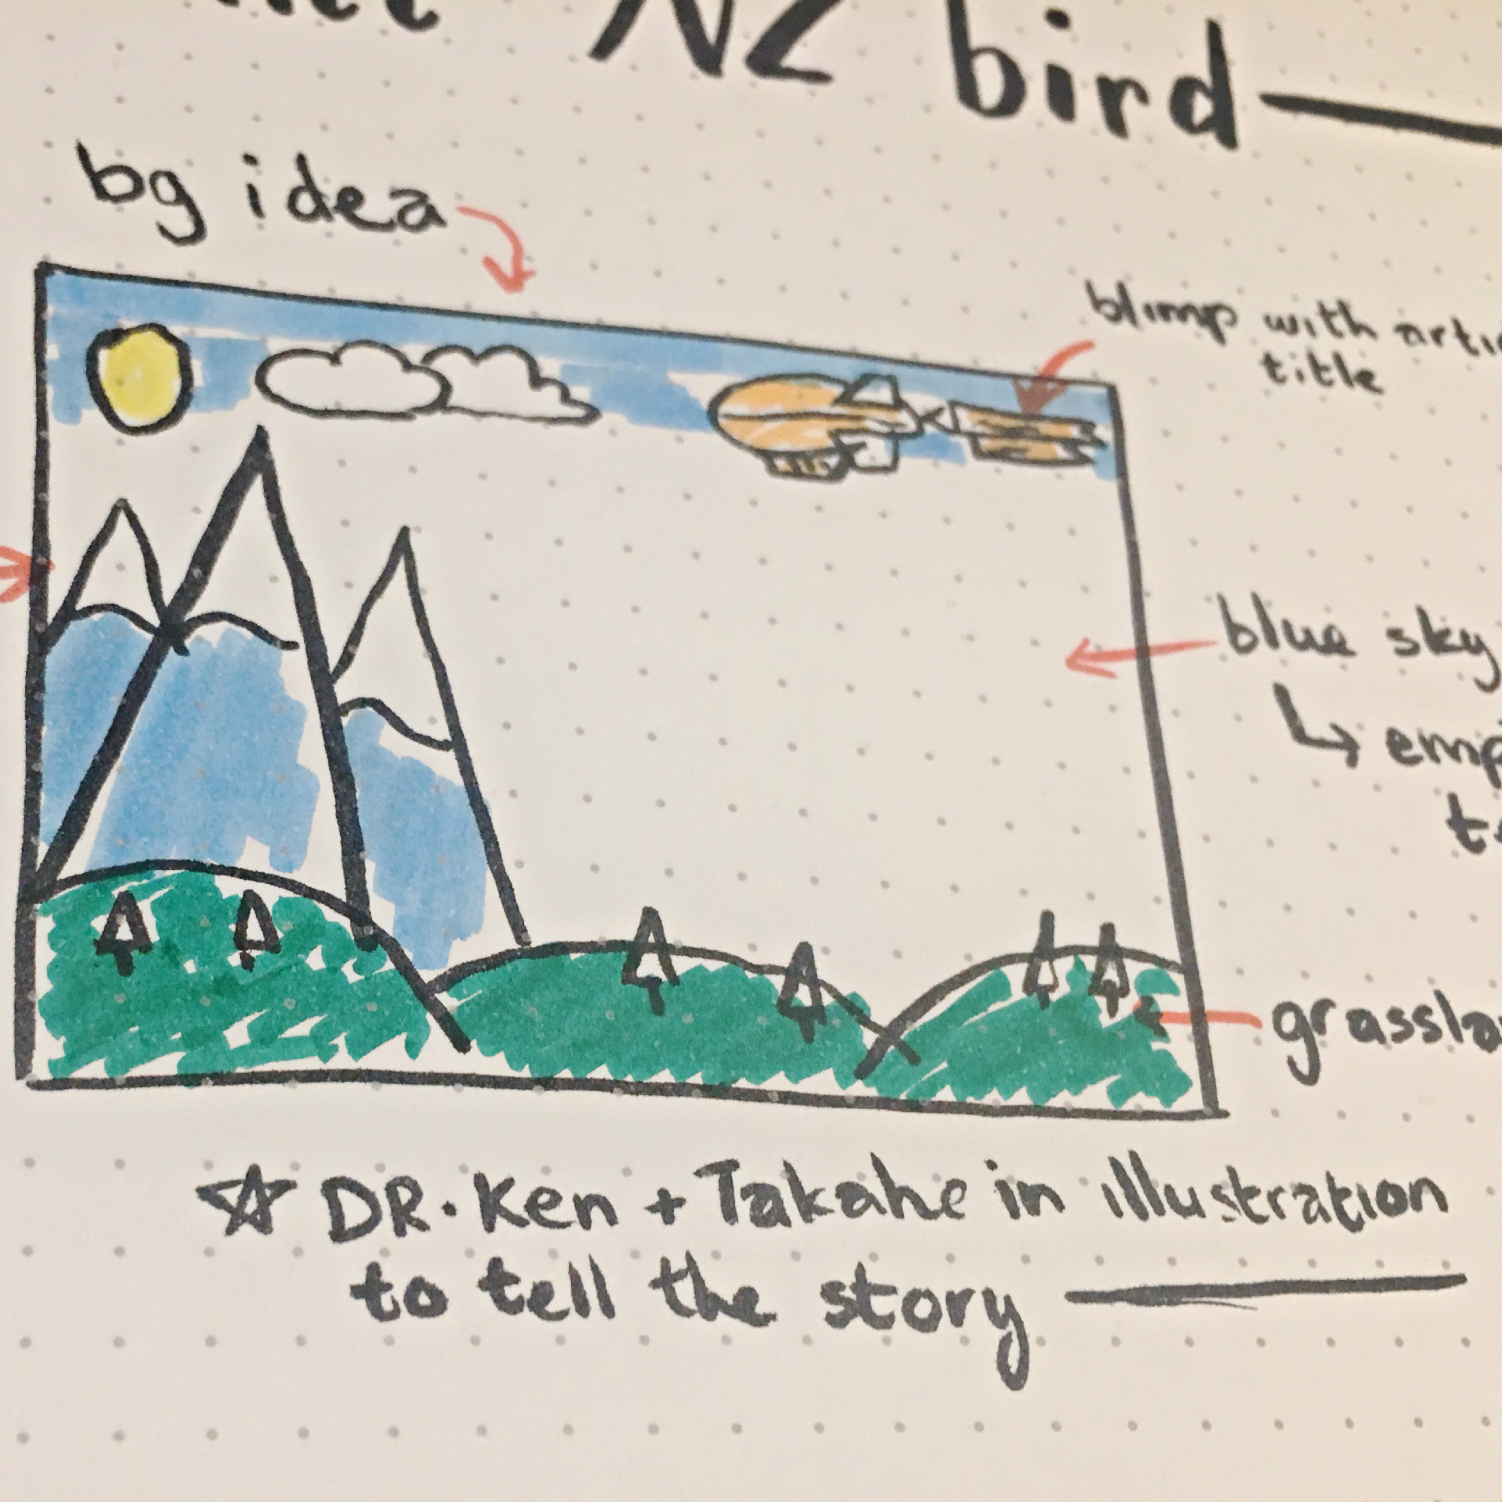 NZ bird
bg idea
blimp with
title
blue sky
☆ DR. Ken + Takahe in illustration
to tell the story